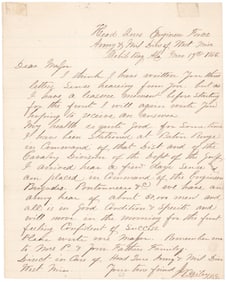 Head Qurs Engineer Force
Army & Mil Div of West Miss
Mobile Bay Ala Mar 19th 1865
Dear Major
I think I have written You this
letter Since hearing from You. but as
I have a leisure moment before starting
for the front I will again write You
hoping to receive an answer
My health is quite good. for Sometime
I have been Stationed at Baton Rouge
in Command of that Dist and of the
Cavalry Division of the Dept of the Gulf
I arrived here a few days Since &
am placed in Command of the Engineer
Brigade Pontoniers &c. We have an
army here of about men and
all is in Good Condition & Spirits and
will move in the morning for the front
feeling Confident of Success
Please write me Major. Remember me
to Mrs P & Your Father Family
Direct in Care of Head Qurs Army & Mil Div
West Miss
Your true friend
J Bailey